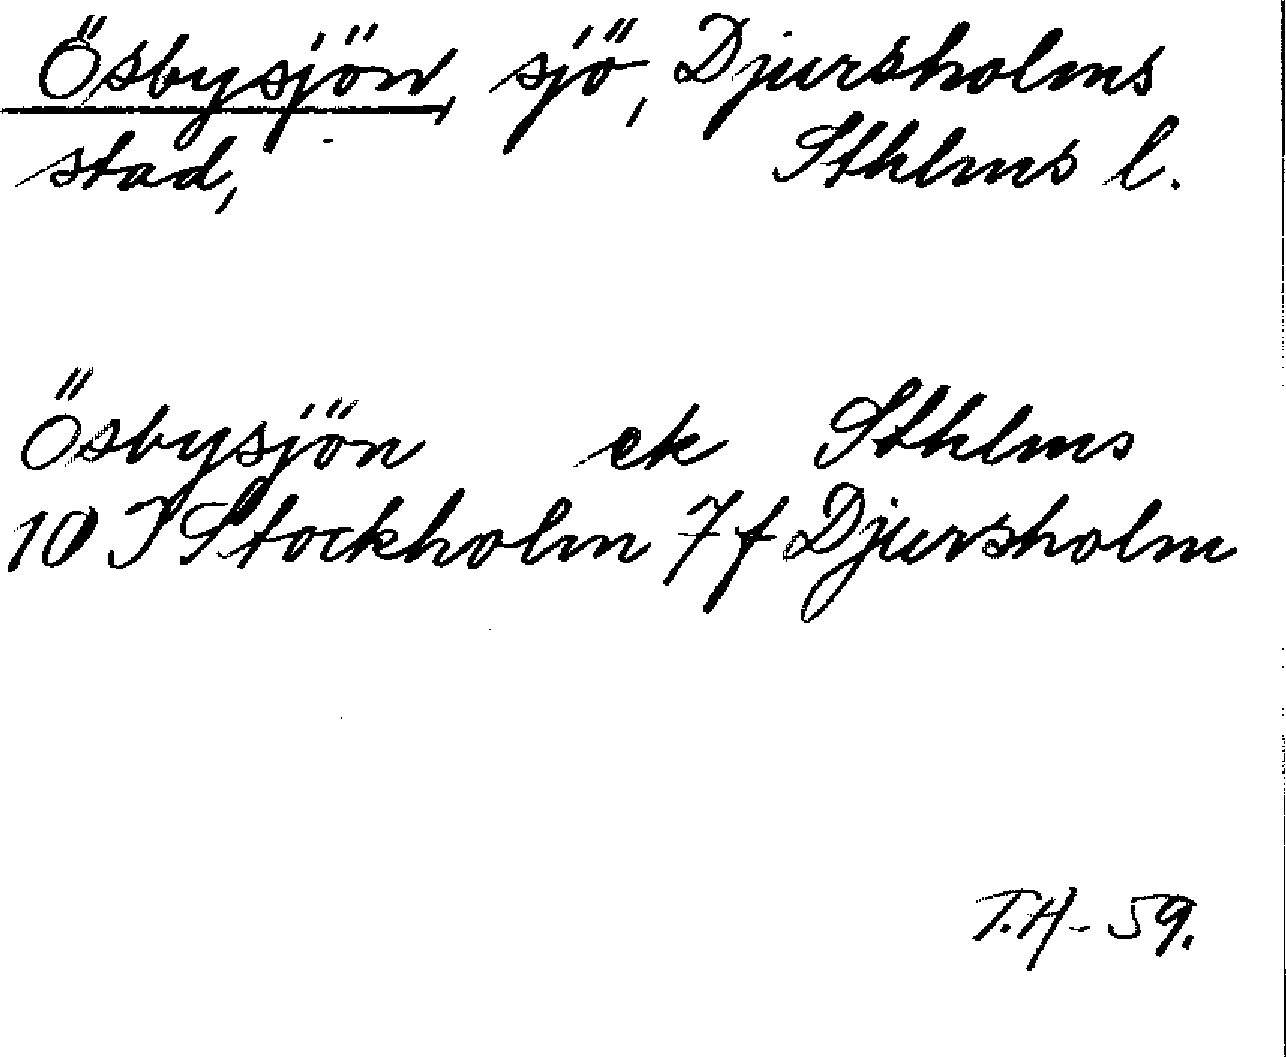 Ösbysjön, sjö, Djursholms
stad, Sthlms l.
Ösbysjön ek Sthlms
10 I Stockholm 7 f Djursholm
T.H. - 59.